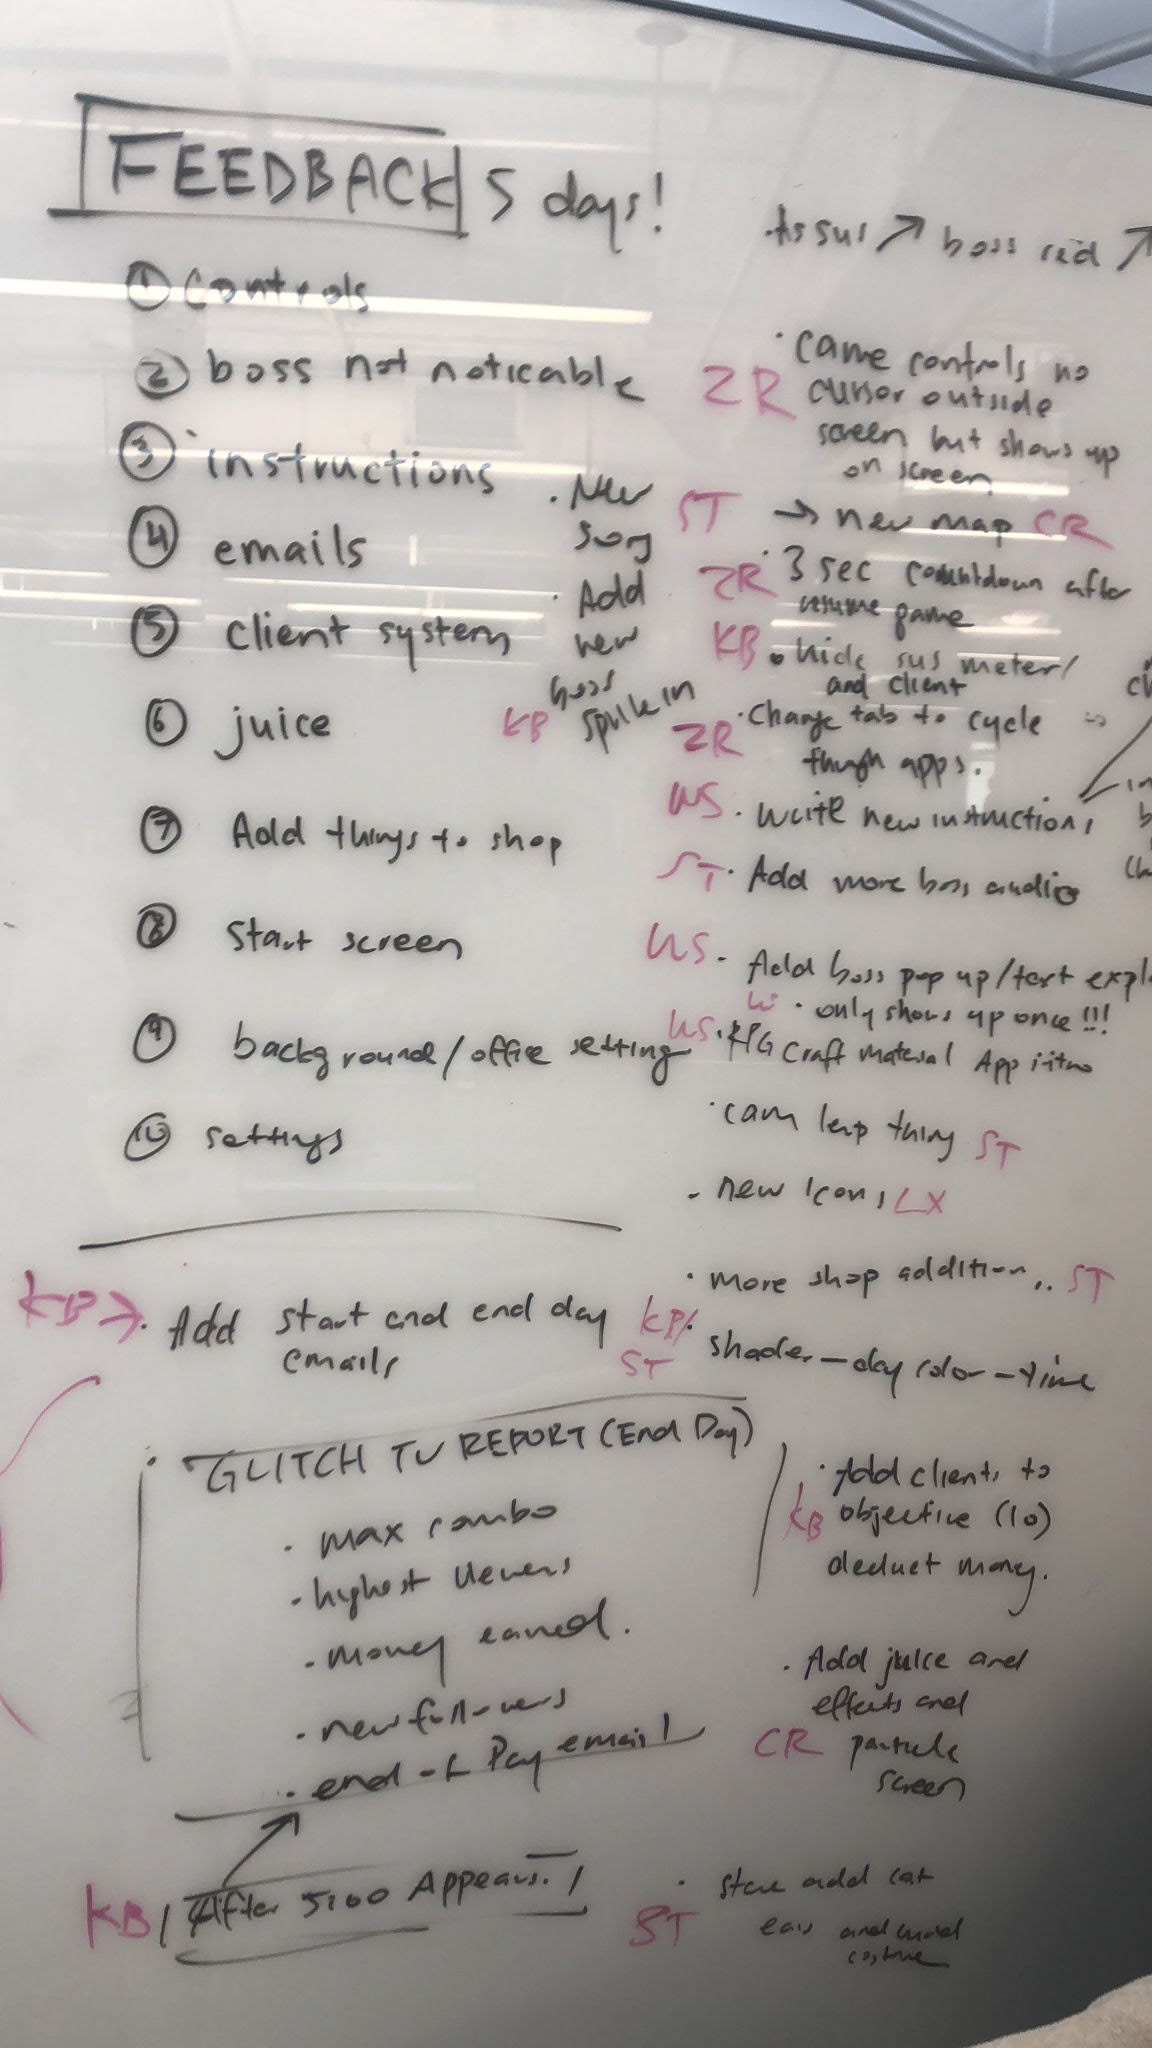 FEEDBACK 5 days!
① controls
② boss not noticable
③ instructions
④ emails
⑤ client system
⑥ juice
⑦ Add things to shop
⑧ start screen
⑨ background/office setting
⑩ settings
· New
song
· Add
new
boss
KB
KB → · Add start and end day
emails
· GLITCH TV REPORT (End Day)
· max combo
· highest viewers
· money earned.
· new followers
· end of Day email
KB After 5:00 Appears.
↗ boss ↗
ZR · came controls no
cursor outside
screen but shows up
on screen
ST → new map CR
ZR · 3 sec countdown after
resume game
KB · hide sus meter/
and client
ZR · Change tab to cycle
though apps.
WS · write new instructions
ST · Add more boss audio
WS · Add boss pop up/text
· only shows up once!!!
WS · RPG Craft Material App intro
· cam thing ST
· new icons LX
· more shop addition.. ST
KB/ ST · shader - day color - time
· Add clients to
KB objective (10)
deduct money.
· Add juice and
effects and
CR particle
screen
ST · store add cat
ears and